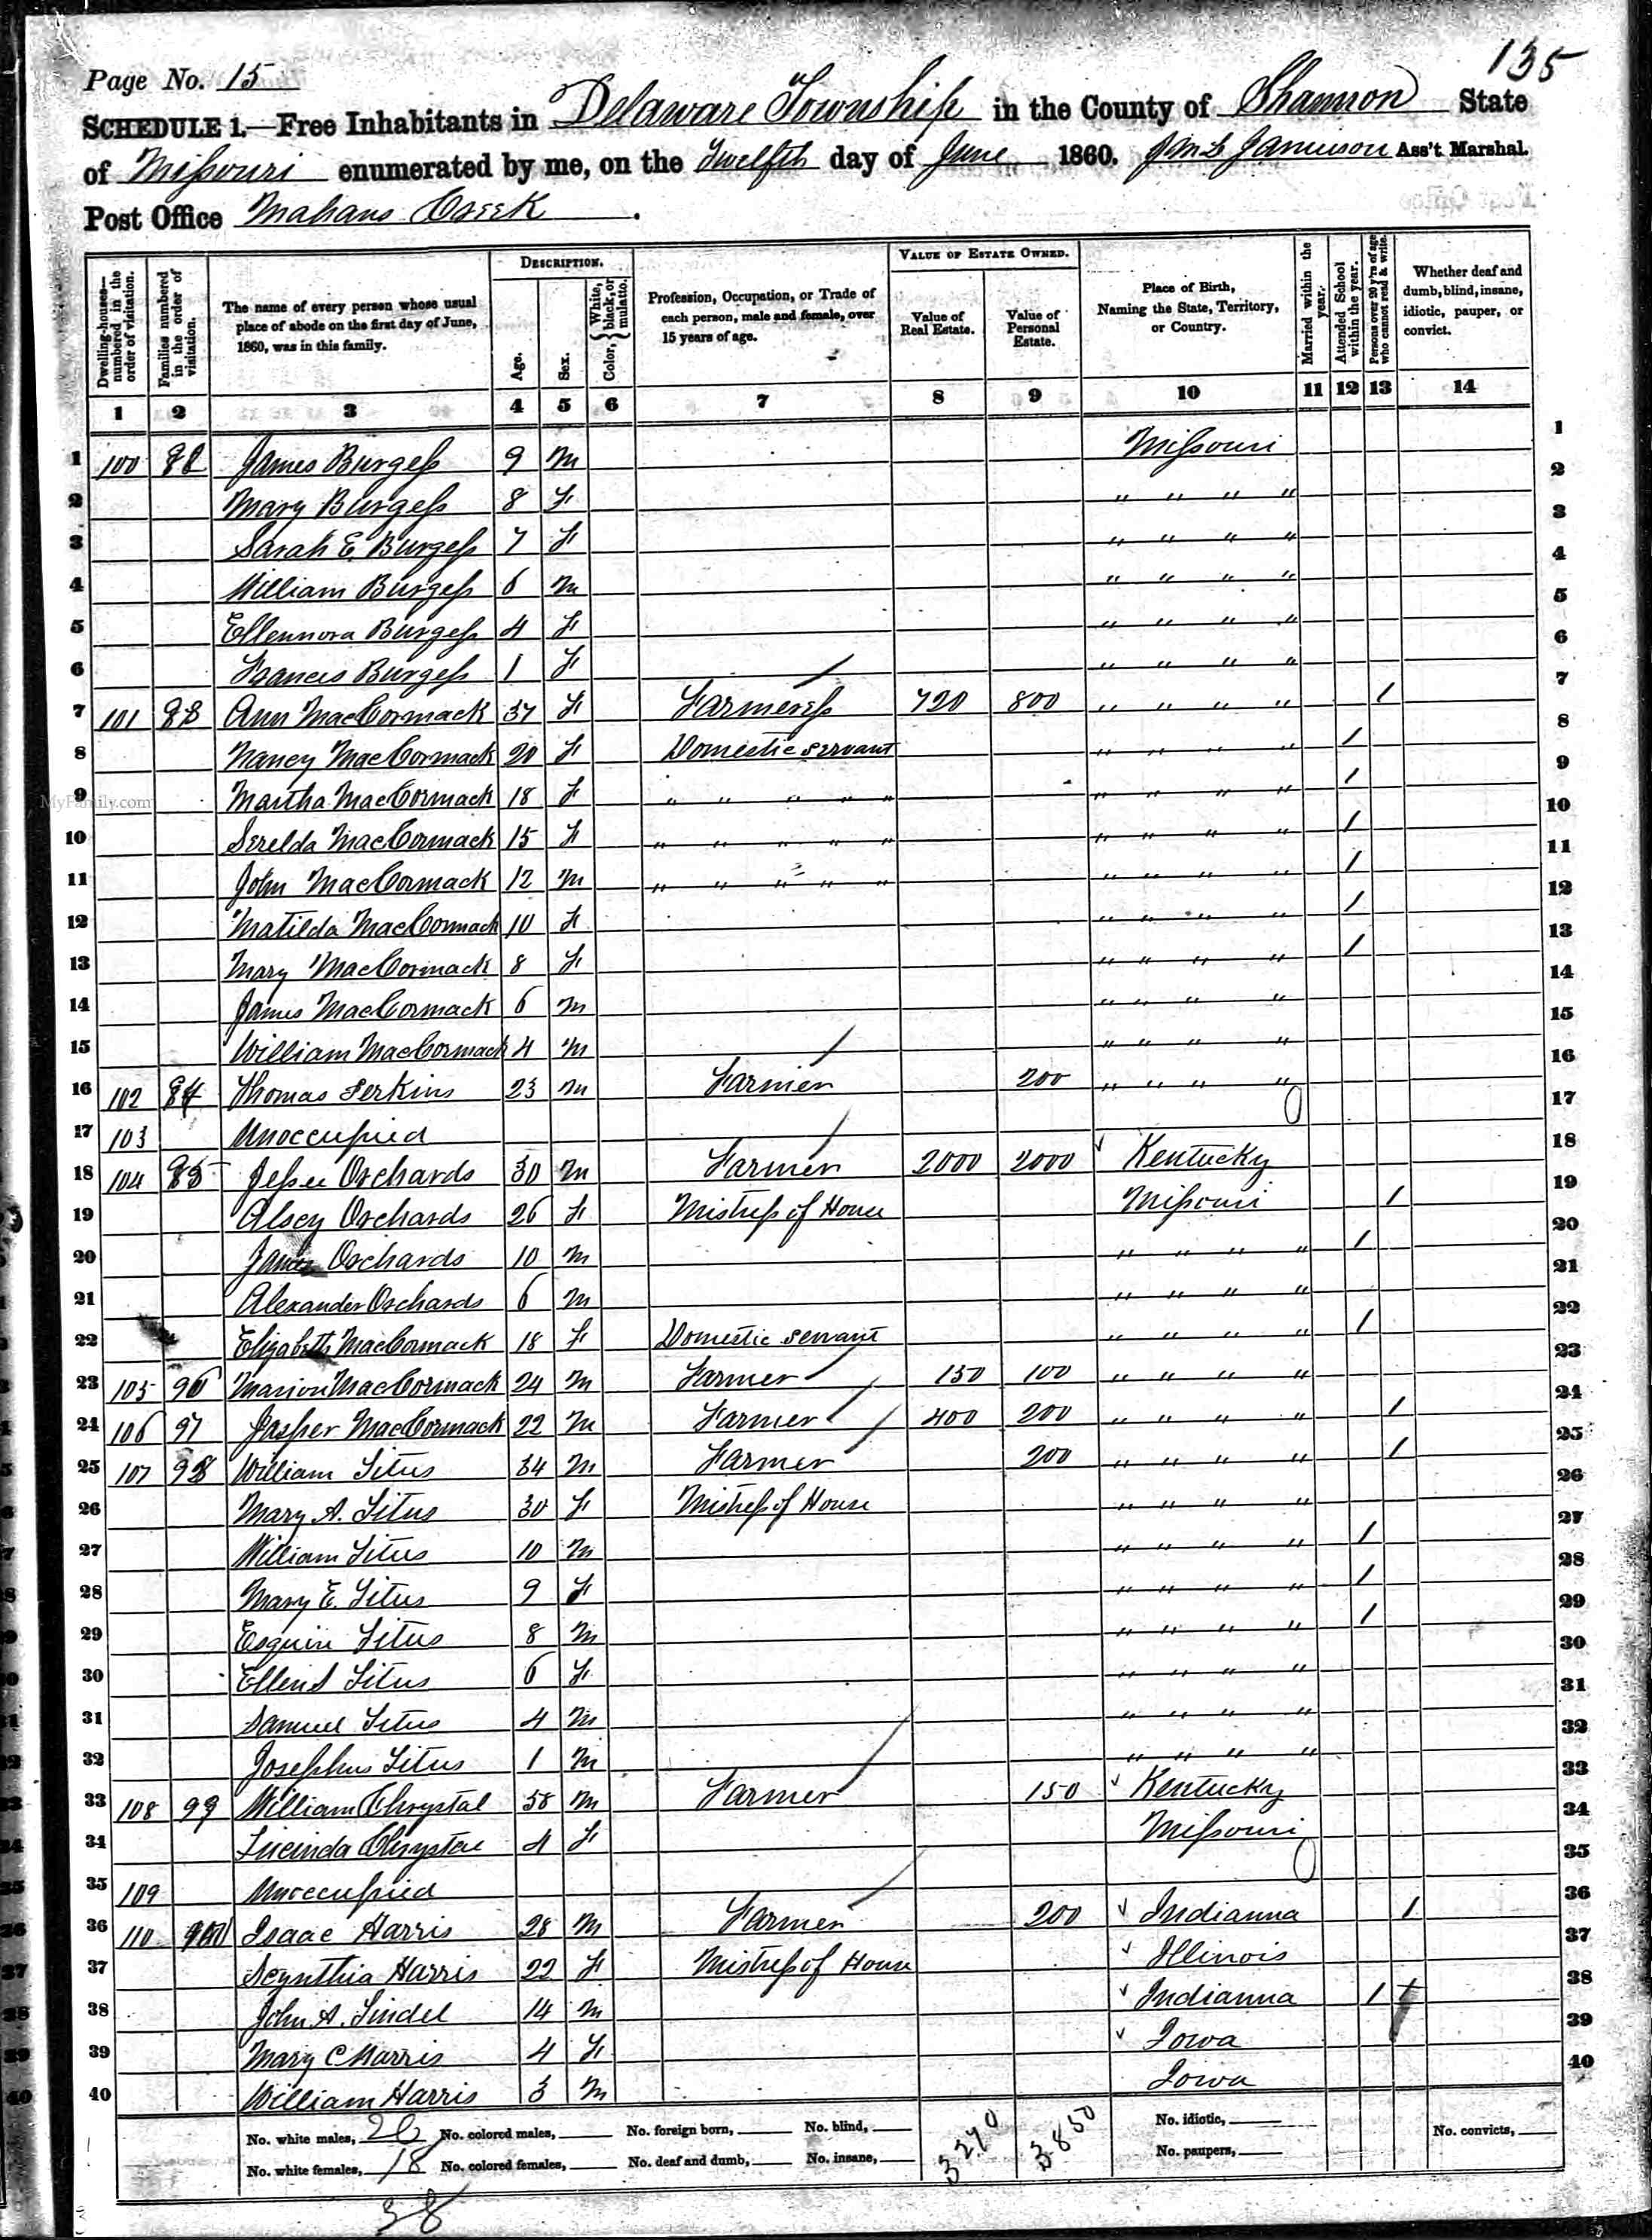 135
Page No. 15
SCHEDULE 1.—Free Inhabitants in Delaware Township in the County of Shannon State
of Missouri enumerated by me, on the Twelfth day of June 1860. Jamison Ass't Marshal.
Post Office Mahans Creek.
Dwelling-houses—numbered in the order of visitation.
Families numbered in the order of visitation.
The name of every person whose usual place of abode on the first day of June, 1860, was in this family.
DESCRIPTION.
Age.
Sex.
Color, { White, black, or mulatto.
Profession, Occupation, or Trade of each person, male and female, over 15 years of age.
VALUE OF ESTATE OWNED.
Value of Real Estate.
Value of Personal Estate.
Place of Birth, Naming the State, Territory, or Country.
Married within the year.
Attended School within the year.
Persons over 20 y'rs of age who cannot read & write.
Whether deaf and dumb, blind, insane, idiotic, pauper, or convict.
1 2 3 4 5 6 7 8 9 10 11 12 13 14
1 100 James Burgess 9 M Missouri 1
2 Mary Burgess 8 F " " " " 2
3 Sarah E. Burgess 7 F " " " " 3
4 William Burgess 6 M " " " " 4
5 Ellennora Burgess 4 F " " " " 5
6 Frances Burgess 1 F " " " " 6
7 101 Ann MacCormack 37 F Farmeress 720 800 " " " " / 7
8 Nancy MacCormack 20 F Domestic servant " " " " / 8
9 Martha MacCormack 18 F " " " " " " " " " / 9
10 Serelda MacCormack 15 F " " " " " " " " " / 10
11 John MacCormack 12 M " " " " " " " " " / 11
12 Matilda MacCormack 10 F " " " " / 12
13 Mary MacCormack 8 F " " " " / 13
14 James MacCormack 6 M " " " " 14
15 William MacCormack 4 M " " " " 15
16 102 Thomas Perkins 23 M Farmer 200 " " " " 16
17 103 Unoccupied 0 17
18 104 Jessee Orchards 30 M Farmer 2000 2000 Kentucky 18
19 Alsey Orchards 26 F Mistress of House Missouri / 19
20 James Orchards 10 M " " " " / 20
21 Alexander Orchards 6 M " " " " 21
22 Elizabeth MacCormack 18 F Domestic servant " " " " / 22
23 105 96 Marion MacCormack 24 M Farmer 150 100 " " " " 23
24 106 97 Jasper MacCormack 22 M Farmer 400 200 " " " " / 24
25 107 98 William Titus 34 M Farmer 200 " " " " / 25
26 Mary A. Titus 30 F Mistress of House " " " " 26
27 William Titus 10 M " " " " / 27
28 Mary E. Titus 9 F " " " " / 28
29 Esquire Titus 8 M " " " " / 29
30 Ellen Titus 6 F " " " " 30
31 Samuel Titus 4 M " " " " 31
32 Josephus Titus 1 M " " " " 32
33 108 99 William Chrystal 58 M Farmer 150 Kentucky 33
34 Lucinda Chrystal 4 F Missouri 34
35 109 Unoccupied 0 35
36 110 Isaac Harris 28 M Farmer 200 Indianna / 36
37 Scynthia Harris 22 F Mistress of House Illinois 37
38 John A. 14 M Indianna / 38
39 Mary C Harris 4 F Iowa 39
40 William Harris 3 M Iowa 40
No. white males, 20 No. colored males, No. foreign born, No. blind, 3270 3850 No. idiotic, No. convicts,
No. white females, 18 No. colored females, No. deaf and dumb, No. insane, No. paupers,
38
MyFamily.com